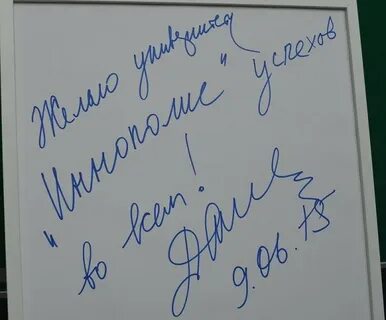 Желаю университету
"Иннополис" успехов
во всем!
9.06.15